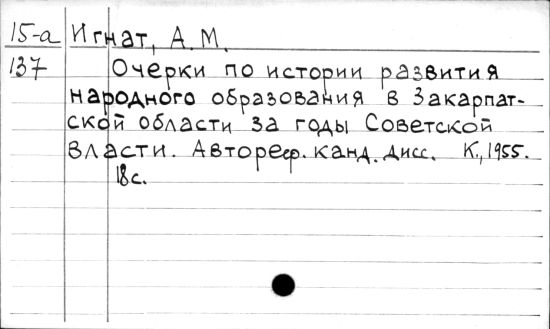 15-а Игнат, А.М.
137 Очерки по истории развития
народного образования в Закарпат-
ской области за годы Советской
власти. Автореф. канд. дисс. К., 1955.
18с.